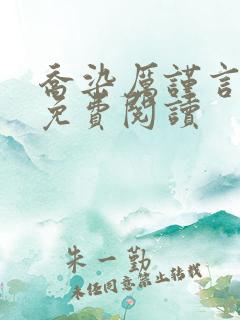 喬染厲謹言
免費閱讀
朱一勤
未经同意禁止转载